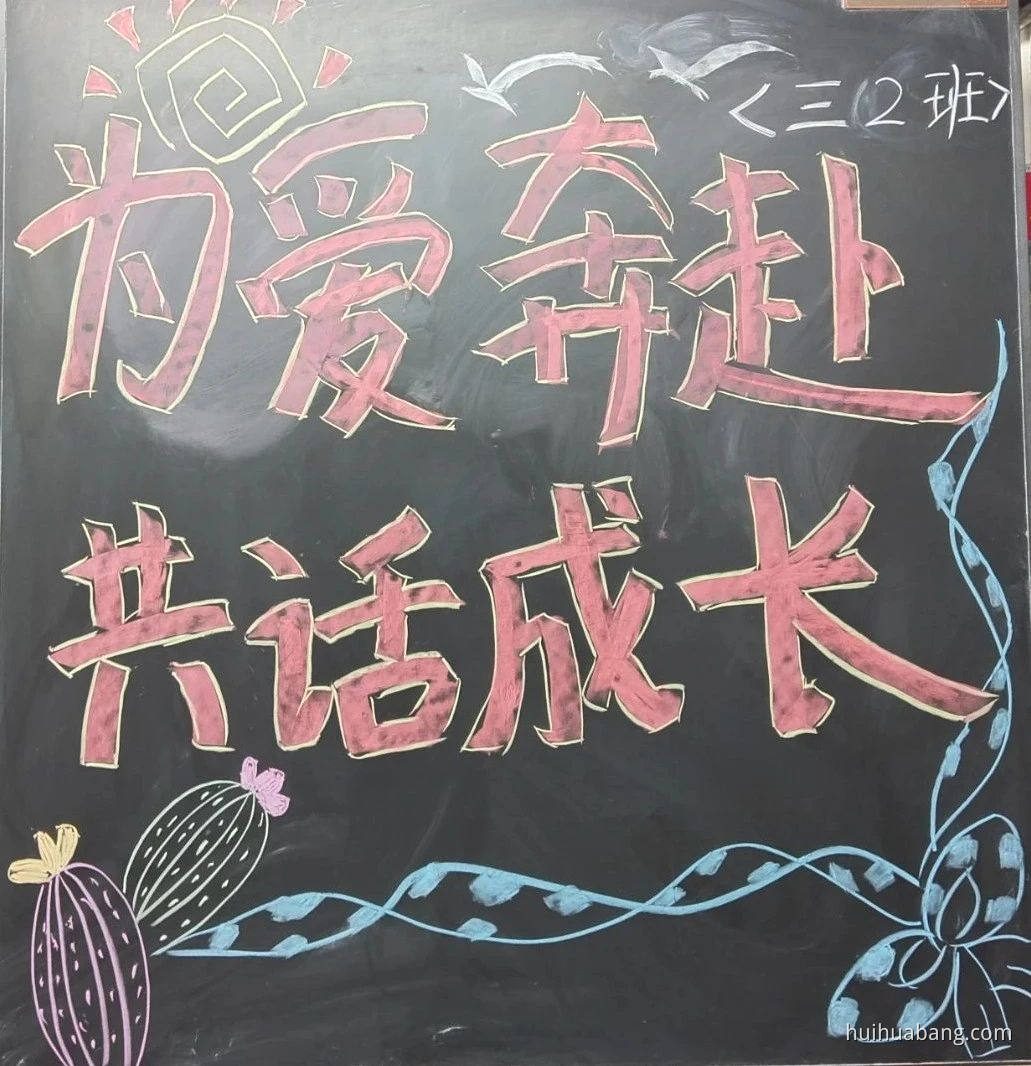 <三2班>
为爱奔赴
共话成长
huihuabang.com